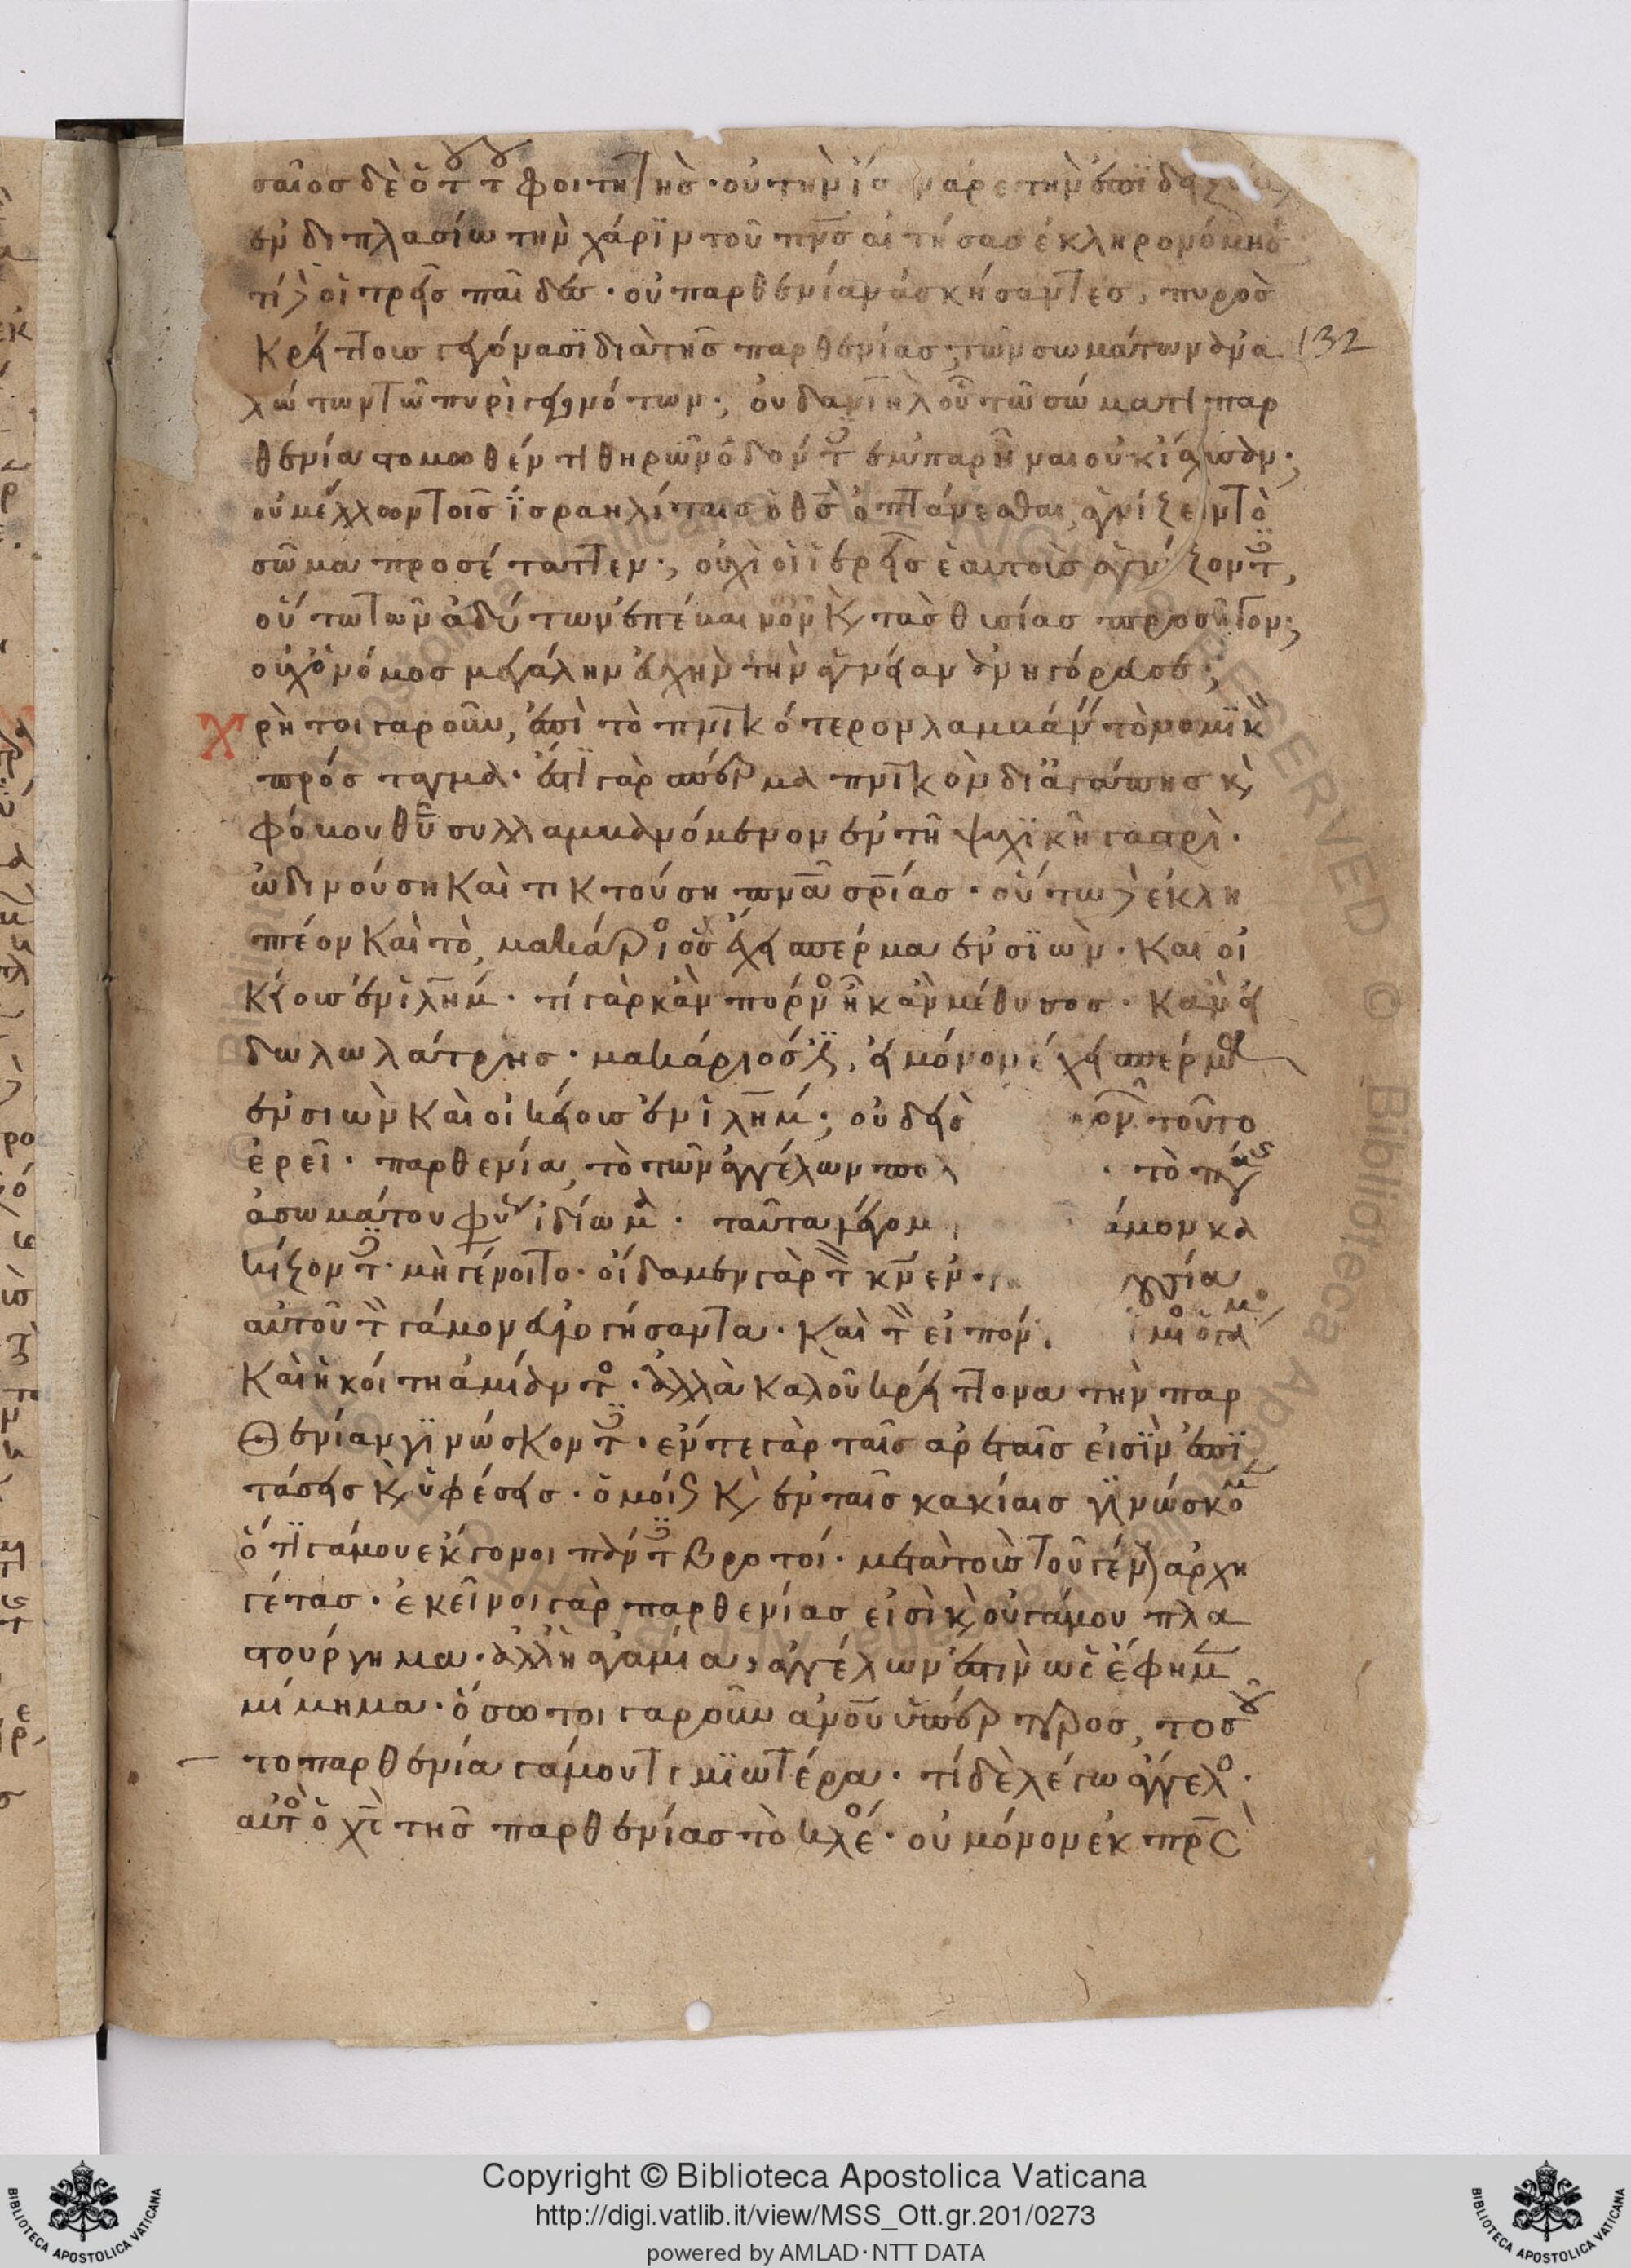 σαῖος δὲ ὁ τούτου φοιτητὴς· οὐ τὴν ἴσ ν ἀρετὴν ἐπιδει
ἐν διπλασίω τὴν χάριν τοῦ πνς αἰτήσας ἐκληρονόμησε
τί δὲ οἱ τρεῖς παῖδες· οὐ παρθενίαν ἀσκήσαντες, πυρὸς
κρείττους γεγόνασι διὰ τῆς παρθενίας; τῶν σωμάτων ἀνα
λώτων τῶ πυρὶ γεγονότων; οὐ δανιὴλ οὗ τῶ σώματι παρ
θενία στομωθέντι θηρῶν ὀδόντες ἐμπαρῆναι οὐκ ἴσχυσαν;
οὐ μέλλων τοῖς ἰσραηλίταις ὁ θς ὀπτάνεσθαι, ἁγνίζειν τὸ
σῶμα προσέταττεν; οὐχὶ οἱ ἱερεῖς ἑαυτοὺς ἁγνίζοντες,
οὕτω τῶν ἀδύτων ἐπέβαινον καὶ τὰς θυσίας προσῆγον;
οὐχ ὁ νόμος μεγάλην εὐχὴν τὴν ἁγνείαν ἀνηγόρευσε;
χρὴ τοιγαροῦν, ἐπὶ τὸ πνικώτερον λαμβάνειν τὸ νομικὸν
πρόσταγμα· ἔστι γὰρ σπέρμα πνικὸν δι' ἀγάπης καὶ
φόβου θυ συλλαμβανόμενον ἐν τῆ ψυχικῆ γαστρὶ·
ὠδινούση καὶ τικτούση πνα σρίας· οὕτω δὲ ἐκλη
πτέον καὶ τὸ, μακάριος ὃς ἔχει σπέρμα ἐν σιὼν· καὶ οἰ
κείους ἐν ἰλημ· τί γὰρ κἂν πόρνος ἦ κἂν μέθυσος· κἂν εἰ
δωλολάτρης· μακάριός ἐστι, εἰ μόνον ἔχει σπέρμα
ἐν σιὼν καὶ οἰκείους ἐν ἰλημ; οὐδεὶς τοῦτο
ἐρεῖ· παρθενία, τὸ τῶν ἀγγέλων πολ τὸ πάσης
ἀσωμάτου φύσεως ἰδίωμα· ταῦτα λέγομ άμον κα
κίζοντες· μὴ γένοιτο· οἴδαμεν γὰρ τὸν κν ἐν
αὐτοῦ τὸν γάμον εὐλογήσαντα· καὶ τὸν εἰπόν
καὶ ἡ κοίτη ἀμίαντος· ἀλλὰ καλοῦ κρείττονα τὴν παρ
θενίαν γινώσκοντες· ἔν τε γὰρ ταῖς ἀρεταῖς εἰσὶν ἐπι
τάσεις καὶ ὑφέσεις· ὁμοίως καὶ ἐν ταῖς κακίαις γινώσκομεν
ὅτι γάμου ἔκγονοι πάντες βροτοί· μετὰ τοὺς τοῦ γένους ἀρχη
γέτας· ἐκεῖνοι γὰρ παρθενίας εἰσὶ καὶ οὐ γάμου πλα
στούργημα· ἀλλ' ἡ ἀγαμία, ἀγγέλων ἐστὶν ὡς ἔφημεν
μίμημα· ὅσω τοιγαροῦν ἀνου ὑπέρτερος, τοσοῦ
το παρθενία γάμου τιμιωτέρα· τί δὲ λέγω ἄγγελος·
αὐτὸς ὁ χς τῆς παρθενίας τὸ κλέος· οὐ μόνον ἐκ πρς
132
Copyright © Biblioteca Apostolica Vaticana
http://digi.vatlib.it/view/MSS_Ott.gr.201/0273
powered by AMLAD·NTT DATA
BIBLIOTECA APOSTOLICA VATICANA
BIBLIOTECA APOSTOLICA VATICANA